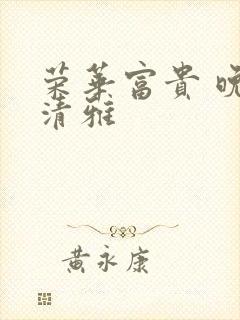 荣華富貴 晚
清雅
黃永康